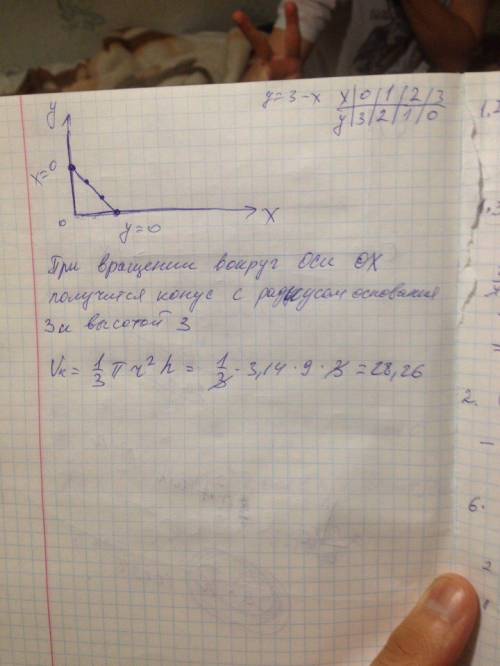 y=3-x
x|0|1|2|3
y|3|2|1|0
y
x=0
0
y=0
x
При вращении вокруг оси ОХ
получится конус с радиусом основания
3 и высотой 3
Vк = 1/3 π r² h = 1/3 · 3,14 · 9 · 3 = 28,26
1,2
2.
6.
2